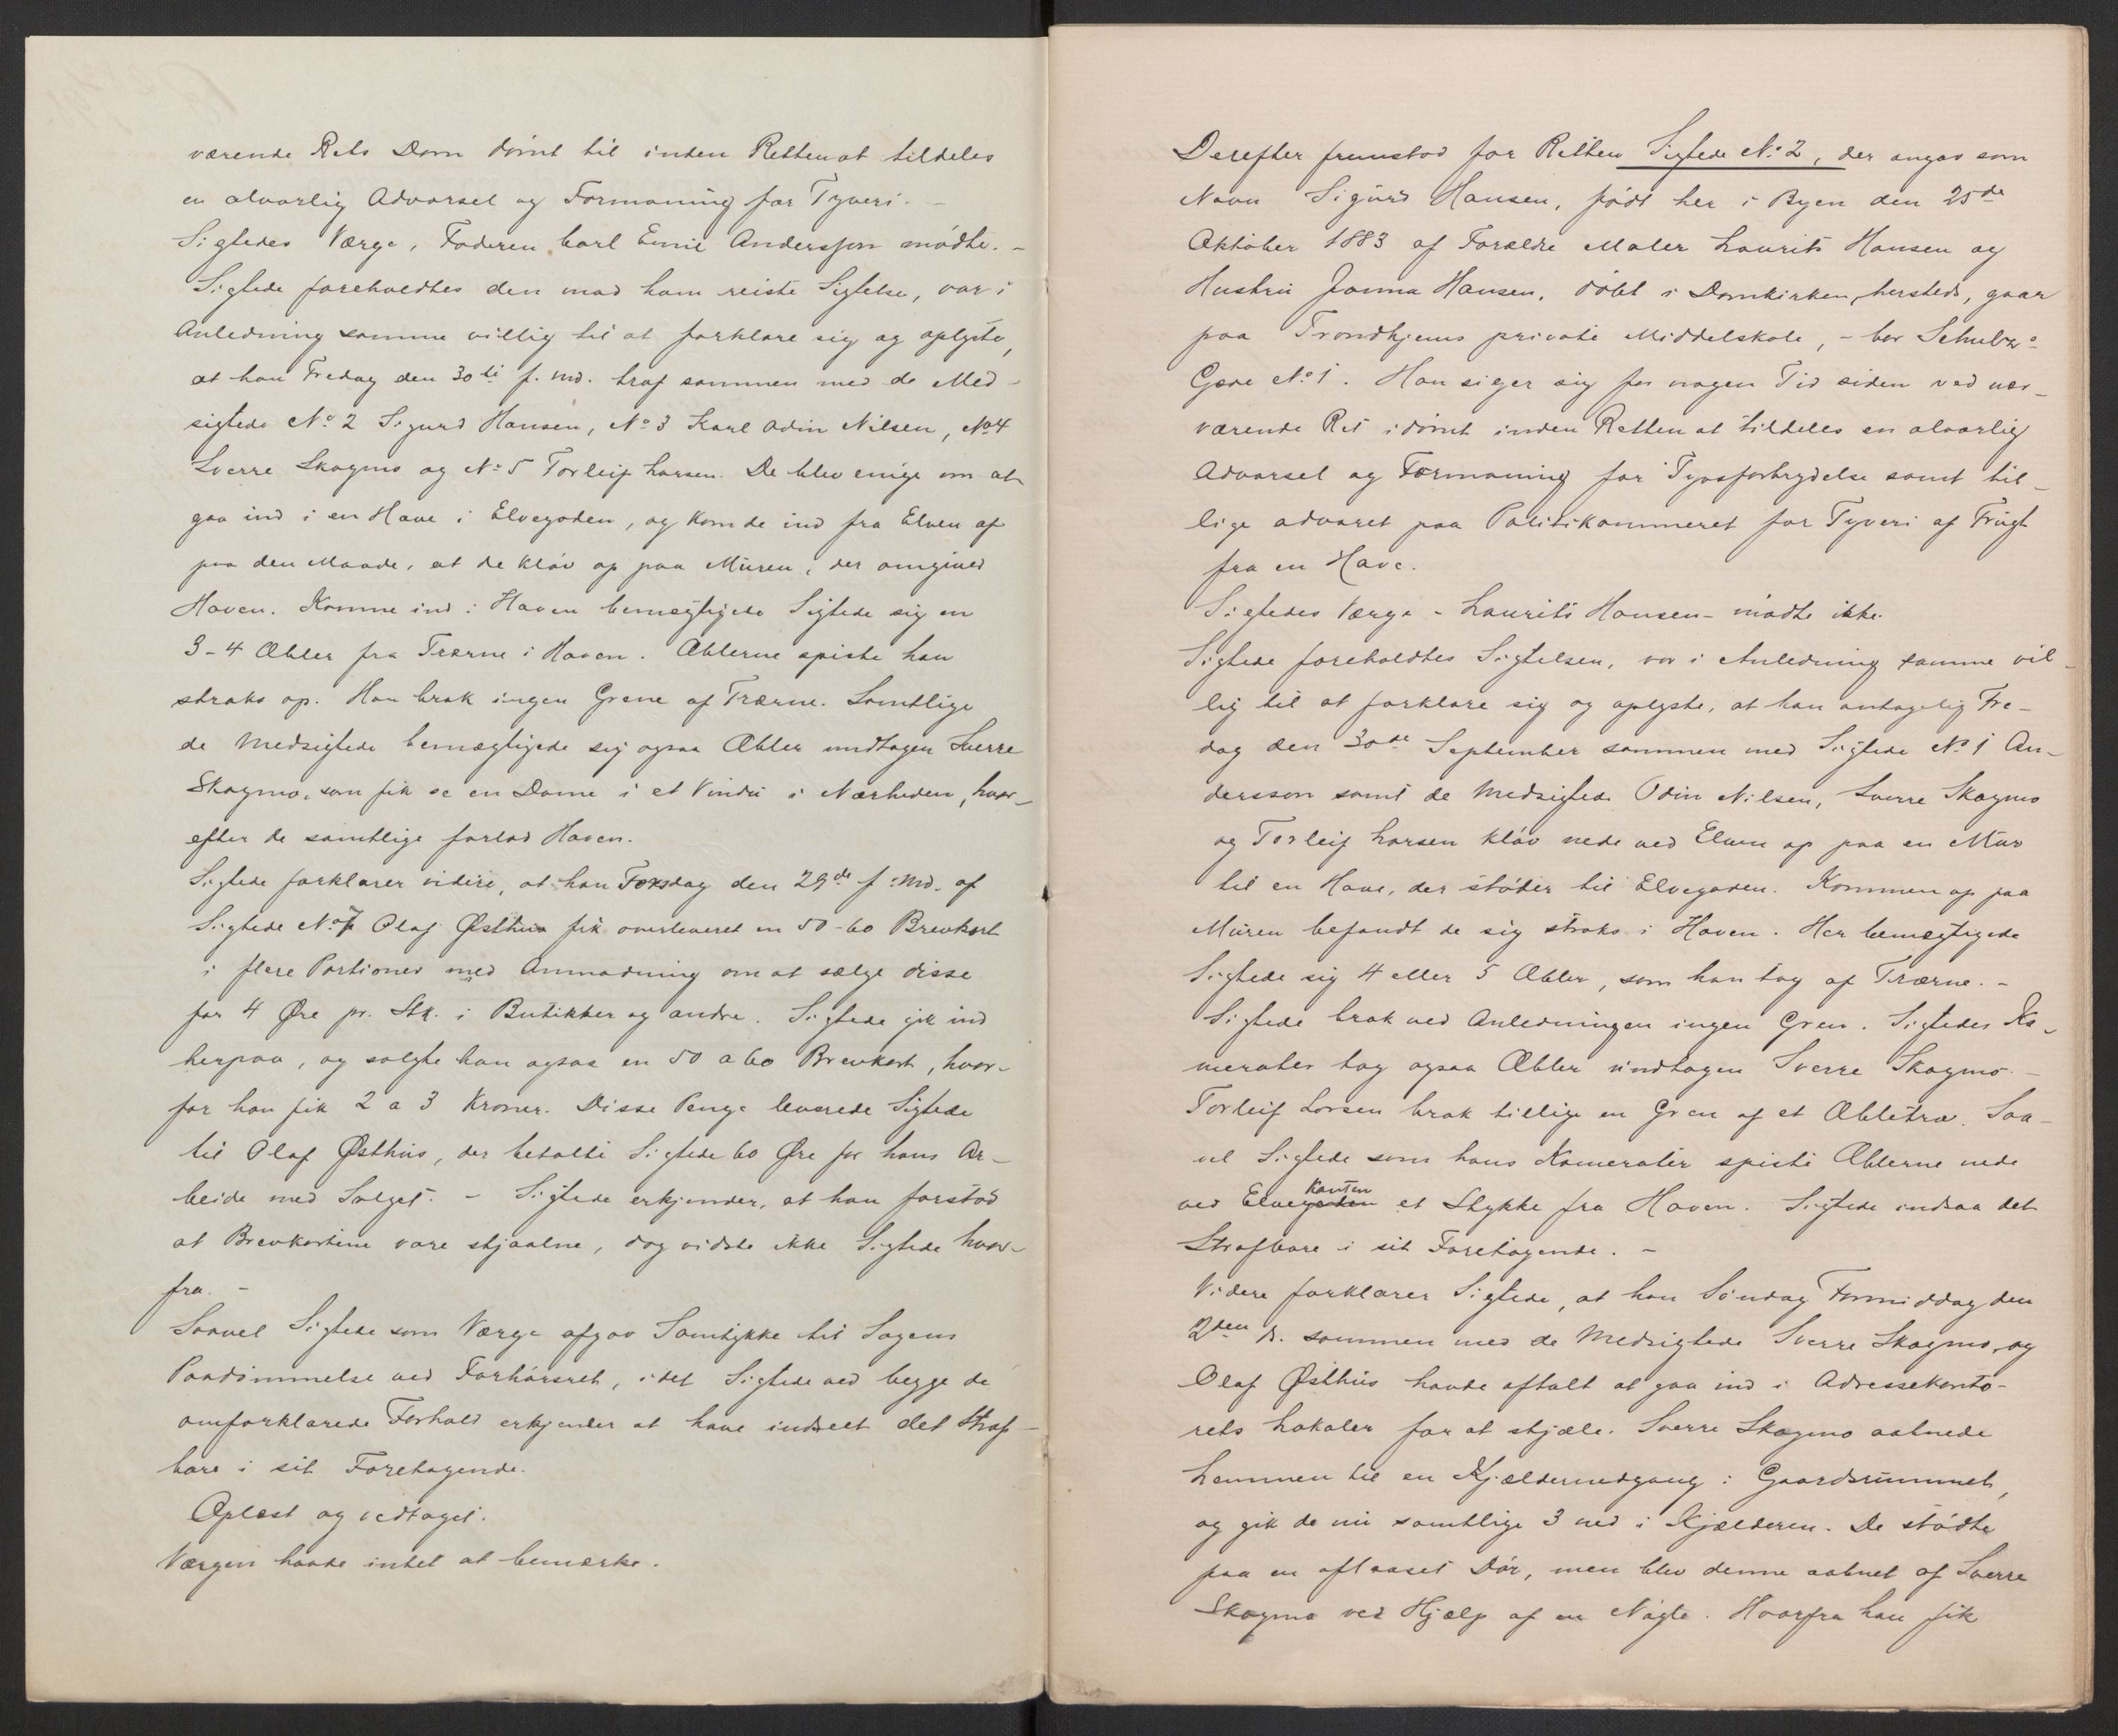 værende Rets Dom dømt til inden Retten at tildeles
en alvorlig Advarsel og Formaning for Tyveri. –
Sigtedes Værge, Faderen Carl Emil Andersson mødte. –
Sigtede foreholdtes den mod ham reiste Sigtelse, var i
Anledning samme villig til at forklare sig og oplyste,
at han Fredag den 30te f. Md. traf sammen med de Med-
sigtede No 2 Sigurd Hansen, No 3 Karl Odin Nilsen, No 4
Sverre Skagmo og No 5 Torleif Larsen. De blev enige om at
gaa ind i en Have i Elvegaden, og kom de ind fra Elven af
paa den Maade, at de kløv op paa Muren, der omgived
Haven. Komne ind i Haven bemægtigede Sigtede sig en
3-4 Æbler fra Trærne i Haven. Æblerne spiste han
straks op. Han brak ingen Grene af Trærne. Samtlige
de Medsigtede bemægtigede sig ogsaa Æbler undtagen Sverre
Skagmo, som fik se en Dame i et Vindu i Nærheden, hvor-
efter de samtlige forlod Haven.
Sigtede forklarer videre, at han Torsdag den 29de f. Md. af
Sigtede No 7 Olaf Østhus fik overleveret en 50-60 Brevkort
i flere Portioner med Anmodning om at sælge disse
for 4 Øre pr. Stk. i Butikker og andre. Sigtede gik ind
herpaa, og solgte han ogsaa en 50 a 60 Brevkort, hvor-
for han fik 2 a 3 Kroner. Disse Penge leverede Sigtede
til Olaf Østhus, der betalte Sigtede 60 Øre for hans Ar-
beide med Salget. – Sigtede erkjender, at han forstod
at Brevkortene vare stjaalne, dog vidste ikke Sigtede hvor-
fra. –
Saavel Sigtede som Værge afgav Samtykke til Sagens
Paadømmelse ved Forhørsret, idet Sigtede ved begge de
omforklarede Forhold erkjender at have indseet det Straf-
bare i sit Foretagende.
Oplæst og vedtaget.
Værgen havde intet at bemærke.
Derefter fremstod for Retten Sigtede No 2, der angav som
Navn Sigurd Hansen, født her i Byen den 25de
Oktober 1883 af Forældre Maler Laurits Hansen og
Hustru Janna Hansen, døbt i Domkirken, hersteds, gaar
paa Trondhjems private Middelskole, – bor Schulz's
Gade No 1. Han siger sig for nogen Tid siden ved nær-
værende Ret idømt inden Retten at tildeles en alvorlig
Advarsel og Formaning for Tyvsforbrydelse samt til-
lige advaret paa Politikammeret for Tyveri af Frugt
fra en Have.
Sigtedes Værge – Laurits Hansen – mødte ikke.
Sigtede foreholdtes Sigtelsen, var i Anledning samme vil-
lig til at forklare sig og oplyste, at han antagelig Fre-
dag den 30de September sammen med Sigtede No 1 An-
dersson samt de Medsigtede Odin Nilsen, Sverre Skagmo
og Torleif Larsen kløv nede ved Elven op paa en Mur
til en Have, der støder til Elvegaden. Kommen op paa
Muren befandt de sig straks i Haven. Her bemægtigede
Sigtede sig 4 eller 5 Æbler, som han tog af Trærne. –
Sigtede brak ved Anledningen ingen Gren. Sigtedes Ka-
merater tog ogsaa Æbler undtagen Sverre Skagmo. –
Torleif Larsen brak tillige en Gren af et Æbletræ. Saa-
vel Sigtede som hans Kamerater spiste Æblerne nede
ved Elvegaden Kanten et Stykke fra Haven. Sigtede indsaa det
Strafbare i sit Foretagende. –
Videre forklarer Sigtede, at han Søndag Formiddag den
2den ds. sammen med de Medsigtede Sverre Skagmo, og
Olaf Østhus havde aftalt at gaa ind i Adressekonto-
rets Lokaler for at stjæle. Sverre Skagmo aabnede
Lemmen til en Kjældernedgang i Gaardsrummet,
og gik de nu samtlige 3 ned i Kjælderen. De stødte
paa en aflaaset Dør, men blev denne aabnet af Sverre
Skagmo ved Hjælp af en Nøgle. Hvorfra han fik